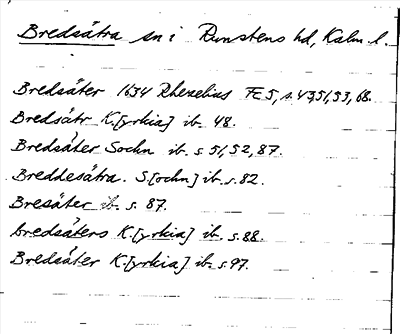 Bredsätra sn i Runstens hd, Kalm. l.
Bredsäter 1634 Rhezelius Fc5, s. 43, 51, 53, 68.
Bredsätr K.[yrkia] ib. 48.
Bredsäter Sochn ib. s 51, 52, 87.
Breddesätra. S.[ochn] ib. s. 82.
Bresäter ib. s. 87.
bredsätens K.[yrkia] ib. s. 88.
Bredsäter K.[yrkia] ib. s. 97.